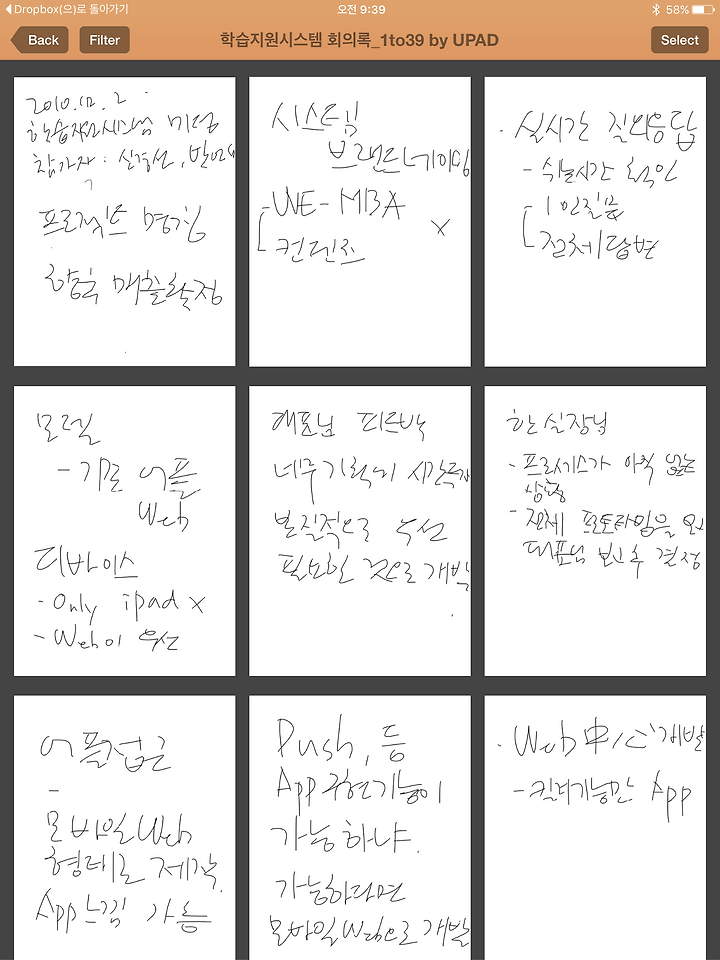 Dropbox(으)로 돌아가기
오전 9:39
58%
Back
Filter
학습지원시스템 회의록_1to39 by UPAD
Select
2010.12.2
학습지원시스템 미팅
참가자 :
프로젝트 명칭
향후 매출확정
시스템
브랜드네이밍
- WE-MBA
컨텐츠
X
· 실시간 질의응답
- 위급시간 확인
- 1인질문
전체답변
모델
- 기존 어플
Web
디바이스
- Only ipad X
- Web이 우선
대표님 피드백
너무 기획의 시간
본질적으로 우선
필요한 것으로 개발
한실장님
- 프로세스가 아직 없는
상황
- 전체 프로타입을
대표님 보고후 결정
어플접근
-
모바일Web
형태로 제작.
App느낌 가능
Push, 등
App구현기능이
가능하냐.
가능하다면
모바일Web으로 개발
· Web中心개발
- 킬러기능만 App